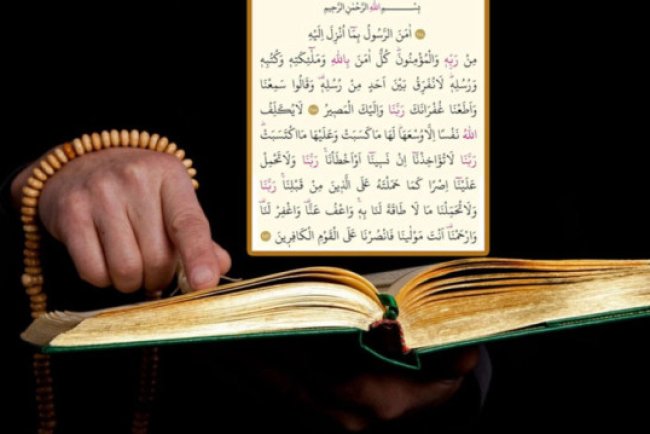 بِسْــــــــمِ اللهِ الرَّحْمٰنِ الرَّحِيمِ
اٰمَنَ الرَّسُولُ بِمَٓا اُنْزِلَ اِلَيْهِ
مِنْ رَبِّه۪ وَالْمُؤْمِنُونَۜ كُلٌّ اٰمَنَ بِاللهِ وَمَلٰٓئِكَتِه۪ وَكُتُبِه۪
وَرُسُلِه۪ۜ لَانُفَرِّقُ بَيْنَ اَحَدٍ مِنْ رُسُلِه۪ۜ وَقَالُوا سَمِعْنَا
وَاَطَعْنَا غُفْرَانَكَ رَبَّنَا وَاِلَيْكَ الْمَص۪يرُ لَايُكَلِّفُ
اللهُ نَفْسًا اِلَّاوُسْعَهَاۜ لَهَا مَاكَسَبَتْ وَعَلَيْهَا مَااكْتَسَبَتْۜ
رَبَّنَا لَاتُؤَاخِذْنَٓا اِنْ نَس۪ينَٓا اَوْاَخْطَأْنَاۚ رَبَّنَا وَلَاتَحْمِلْ
عَلَيْنَٓا اِصْرًا كَمَا حَمَلْتَهُ عَلَى الَّذ۪ينَ مِنْ قَبْلِنَاۚ رَبَّنَا
وَلَاتُحَمِّلْنَا مَا لَا طَاقَةَ لَنَا بِه۪ۚ وَاعْفُ عَنَّا۠ وَاغْفِرْ لَنَا۠
وَارْحَمْنَا۠ اَنْتَ مَوْلٰينَا فَانْصُرْنَا عَلَى الْقَوْمِ الْكَافِر۪ينَ